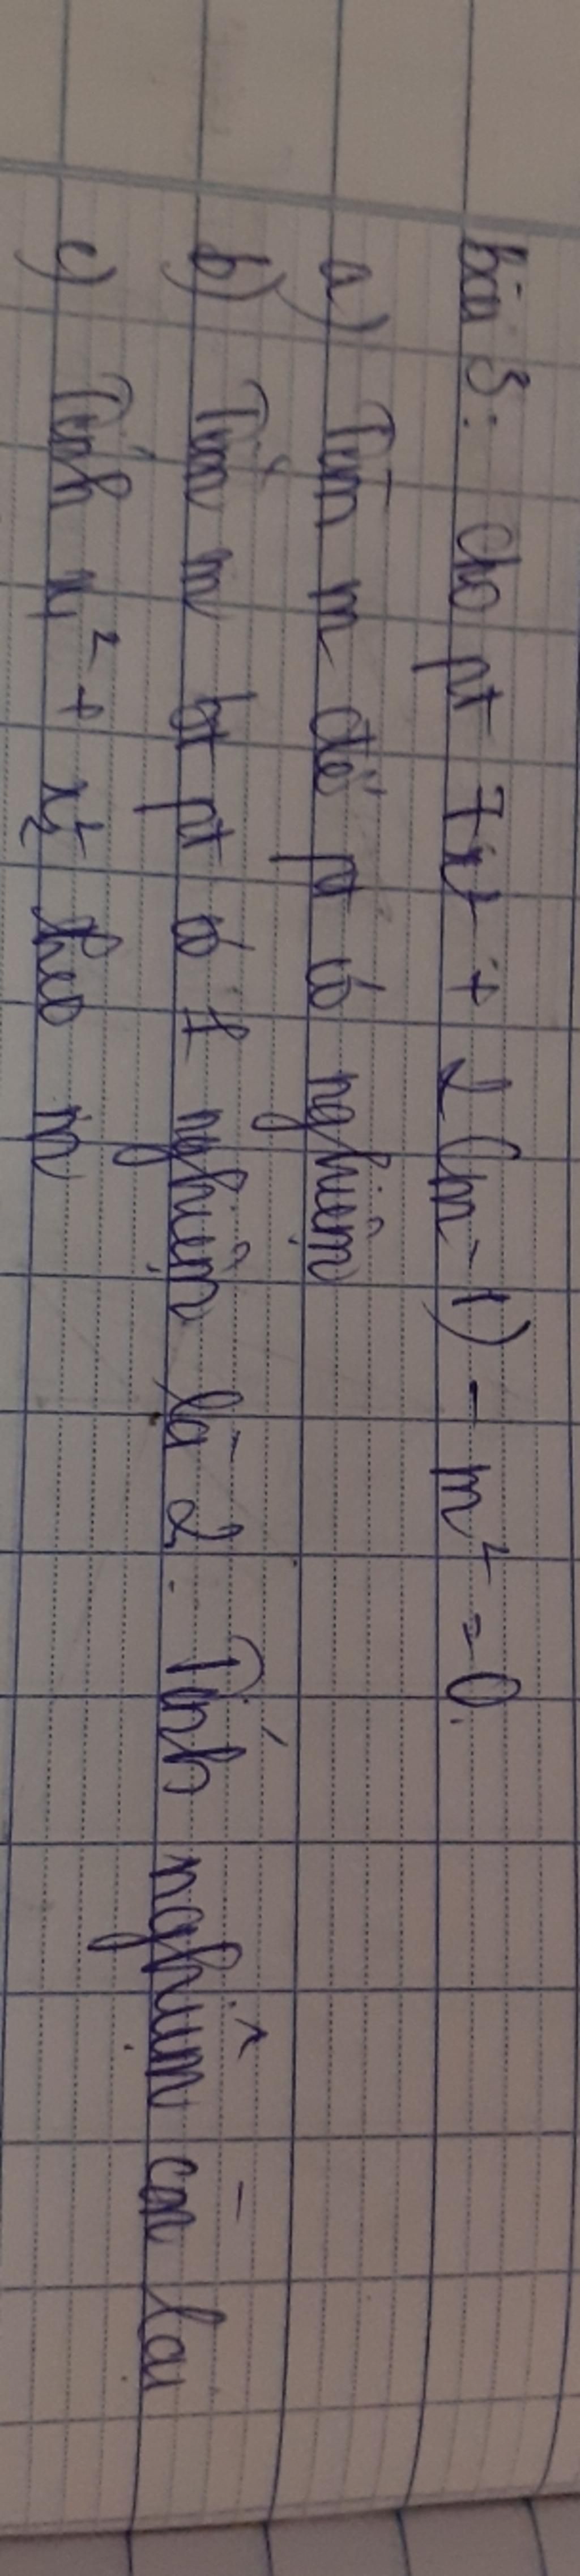 bài 3: cho pt 7x² + 2(m-1) - m² = 0.
a) Tìm m để pt có nghiệm
b) Tìm m bt pt có 1 nghiệm là 2. Tính nghiệm còn lại
c) Tính x₁² + x₂² theo m